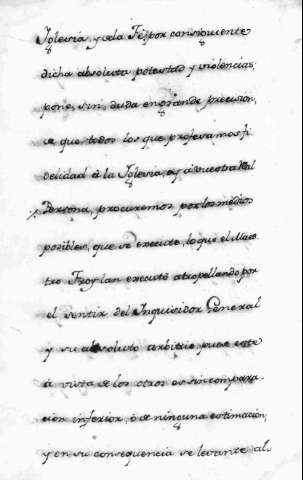 Iglesia, y de la Fe; por consiguiente
dicha absoluta potestad y violencias,
pone, sin duda en grande precision,
de que todos los que profesamos fi
delidad à la Iglesia, oy à vuestra Real
Persona, procuremos por los medios
posibles, que se execute, lo que el Maes
tro Froylan executó atropellando por
el sentir del Inquisidor General
y su absoluto arbitrio pues este
à vista de los otros es sin compara-
cion inferior, ò de ninguna estimacion,
y en su consequencia se levante al